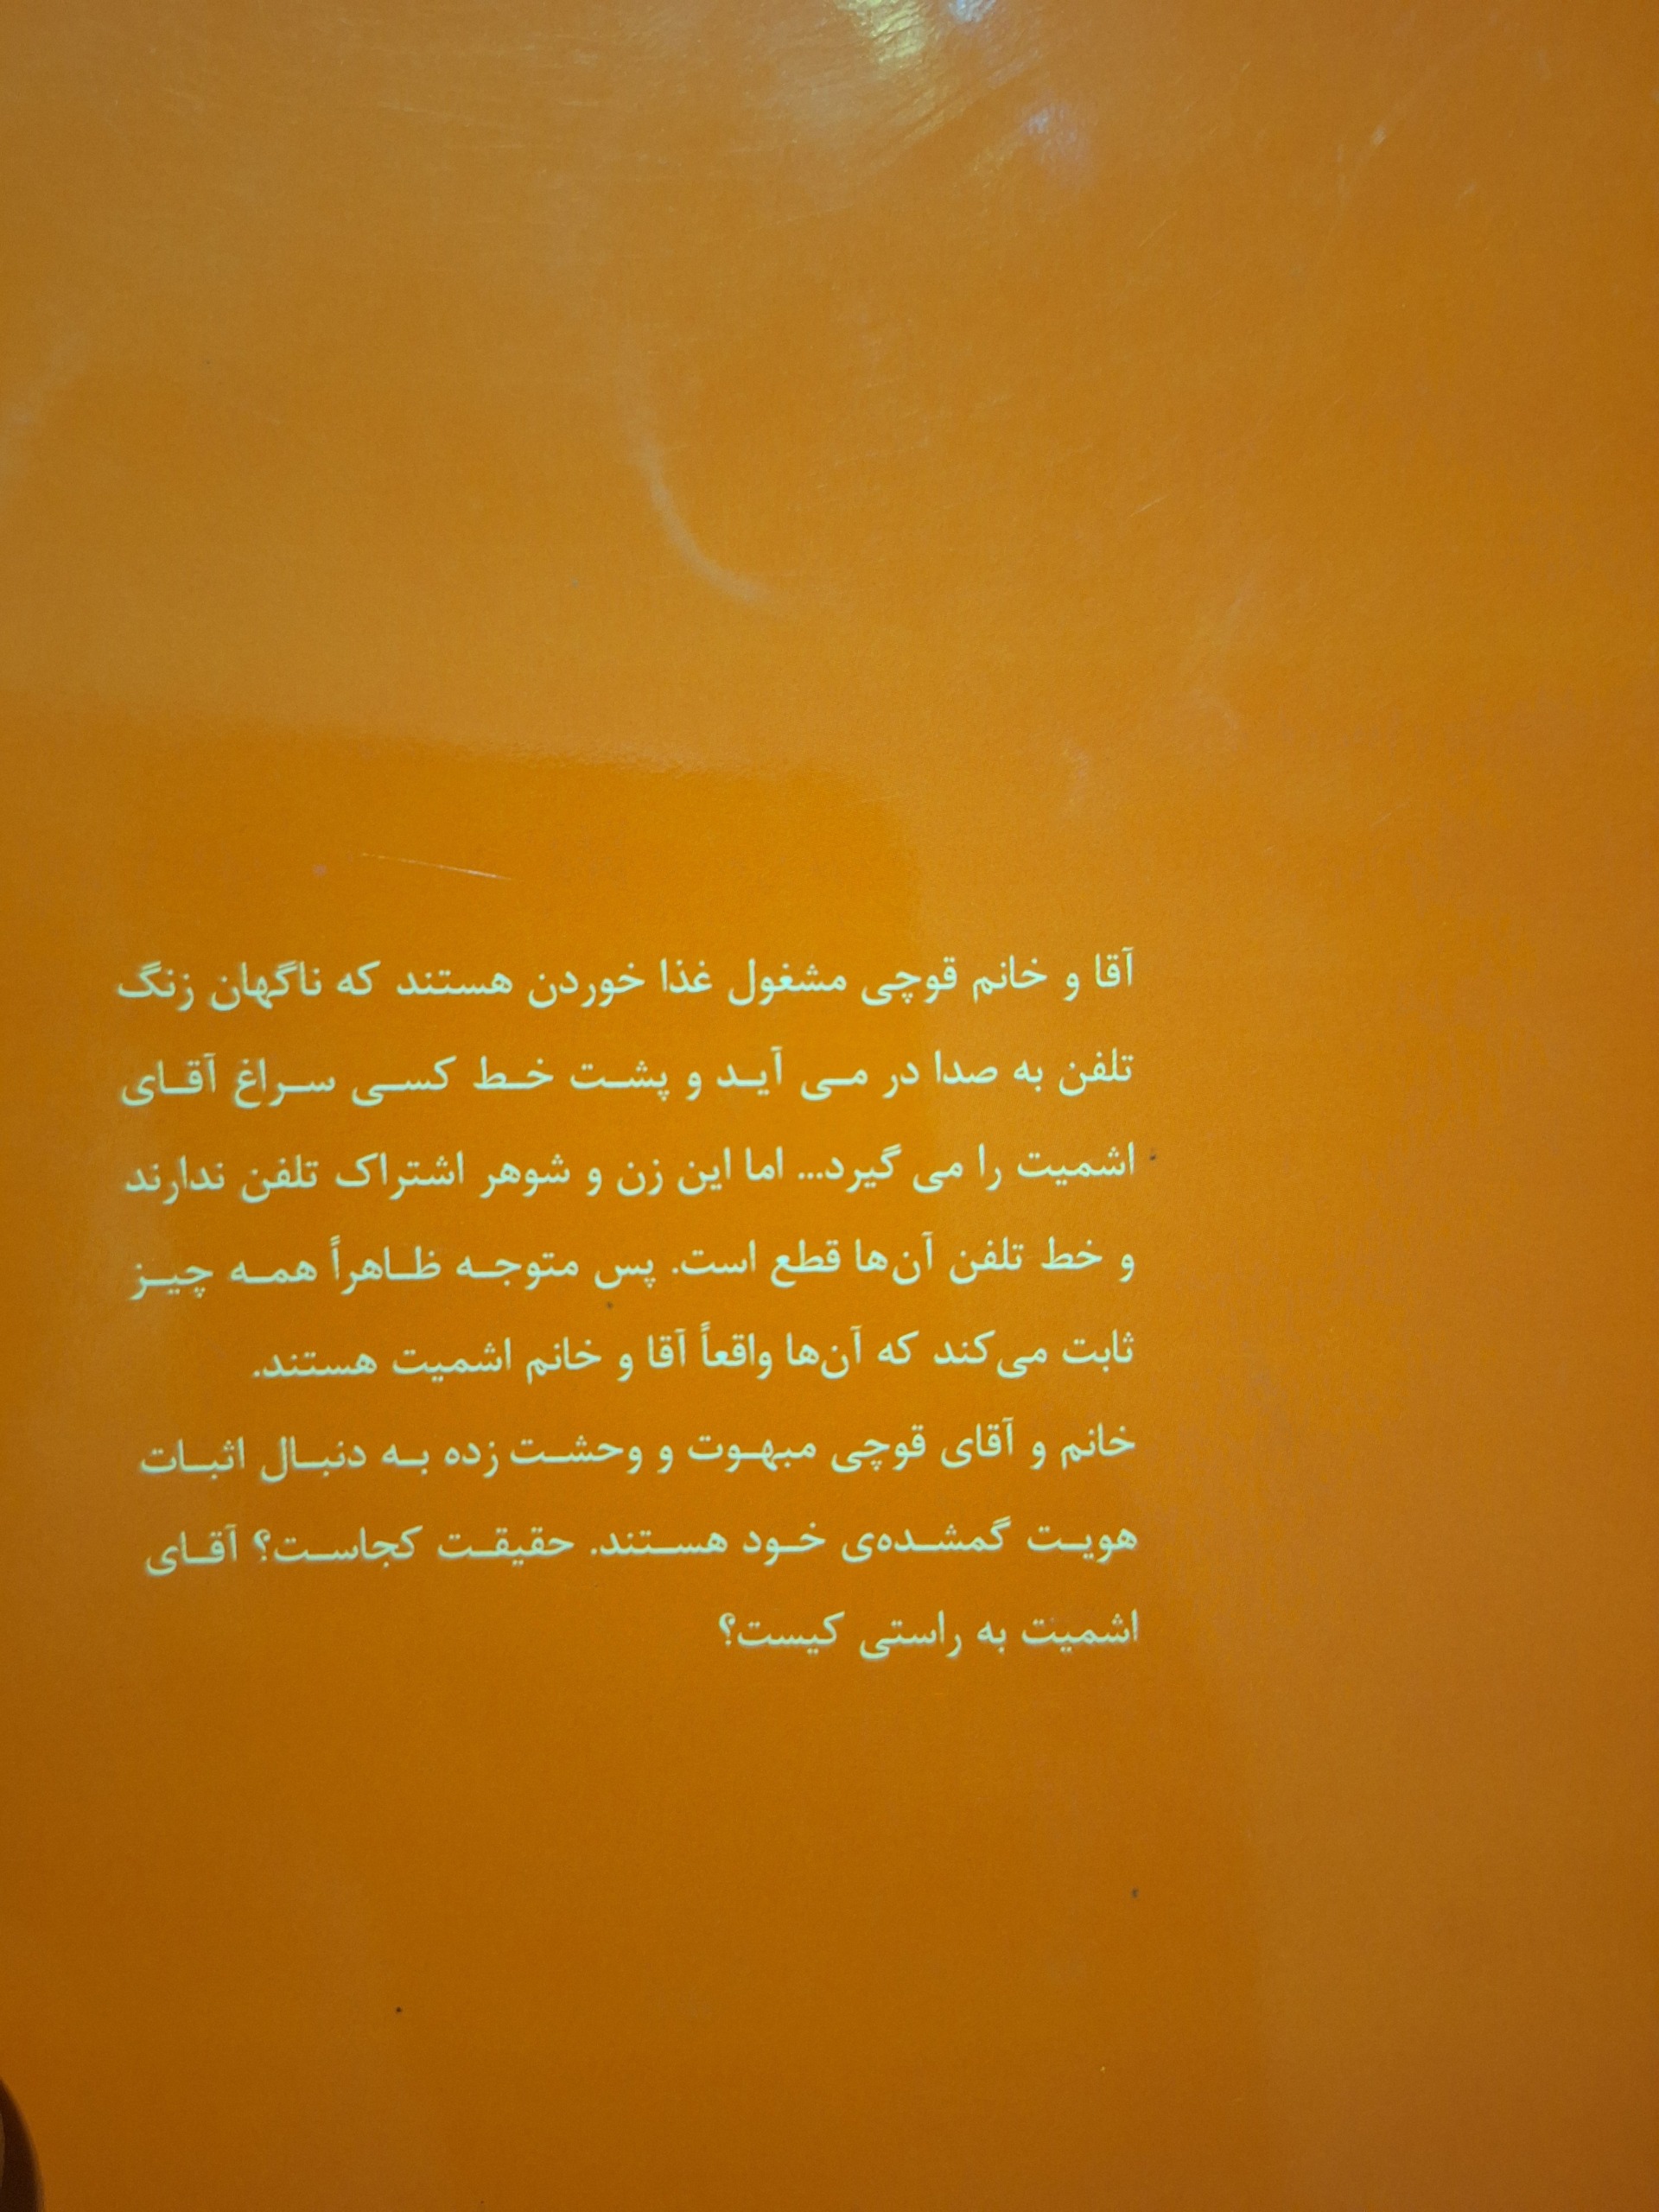 آقا و خانم قوچی مشغول غذا خوردن هستند که ناگهان زنگ
تلفن به صدا در می آید و پشت خط کسی سراغ آقای
اشمیت را می گیرد... اما این زن و شوهر اشتراک تلفن ندارند
و خط تلفن آن‌ها قطع است. پس متوجه ظاهراً همه چیز
ثابت می‌کند که آن‌ها واقعاً آقا و خانم اشمیت هستند.
خانم و آقای قوچی مبهوت و وحشت زده به دنبال اثبات
هویت گمشده‌ی خود هستند. حقیقت کجاست؟ آقای
اشمیت به راستی کیست؟